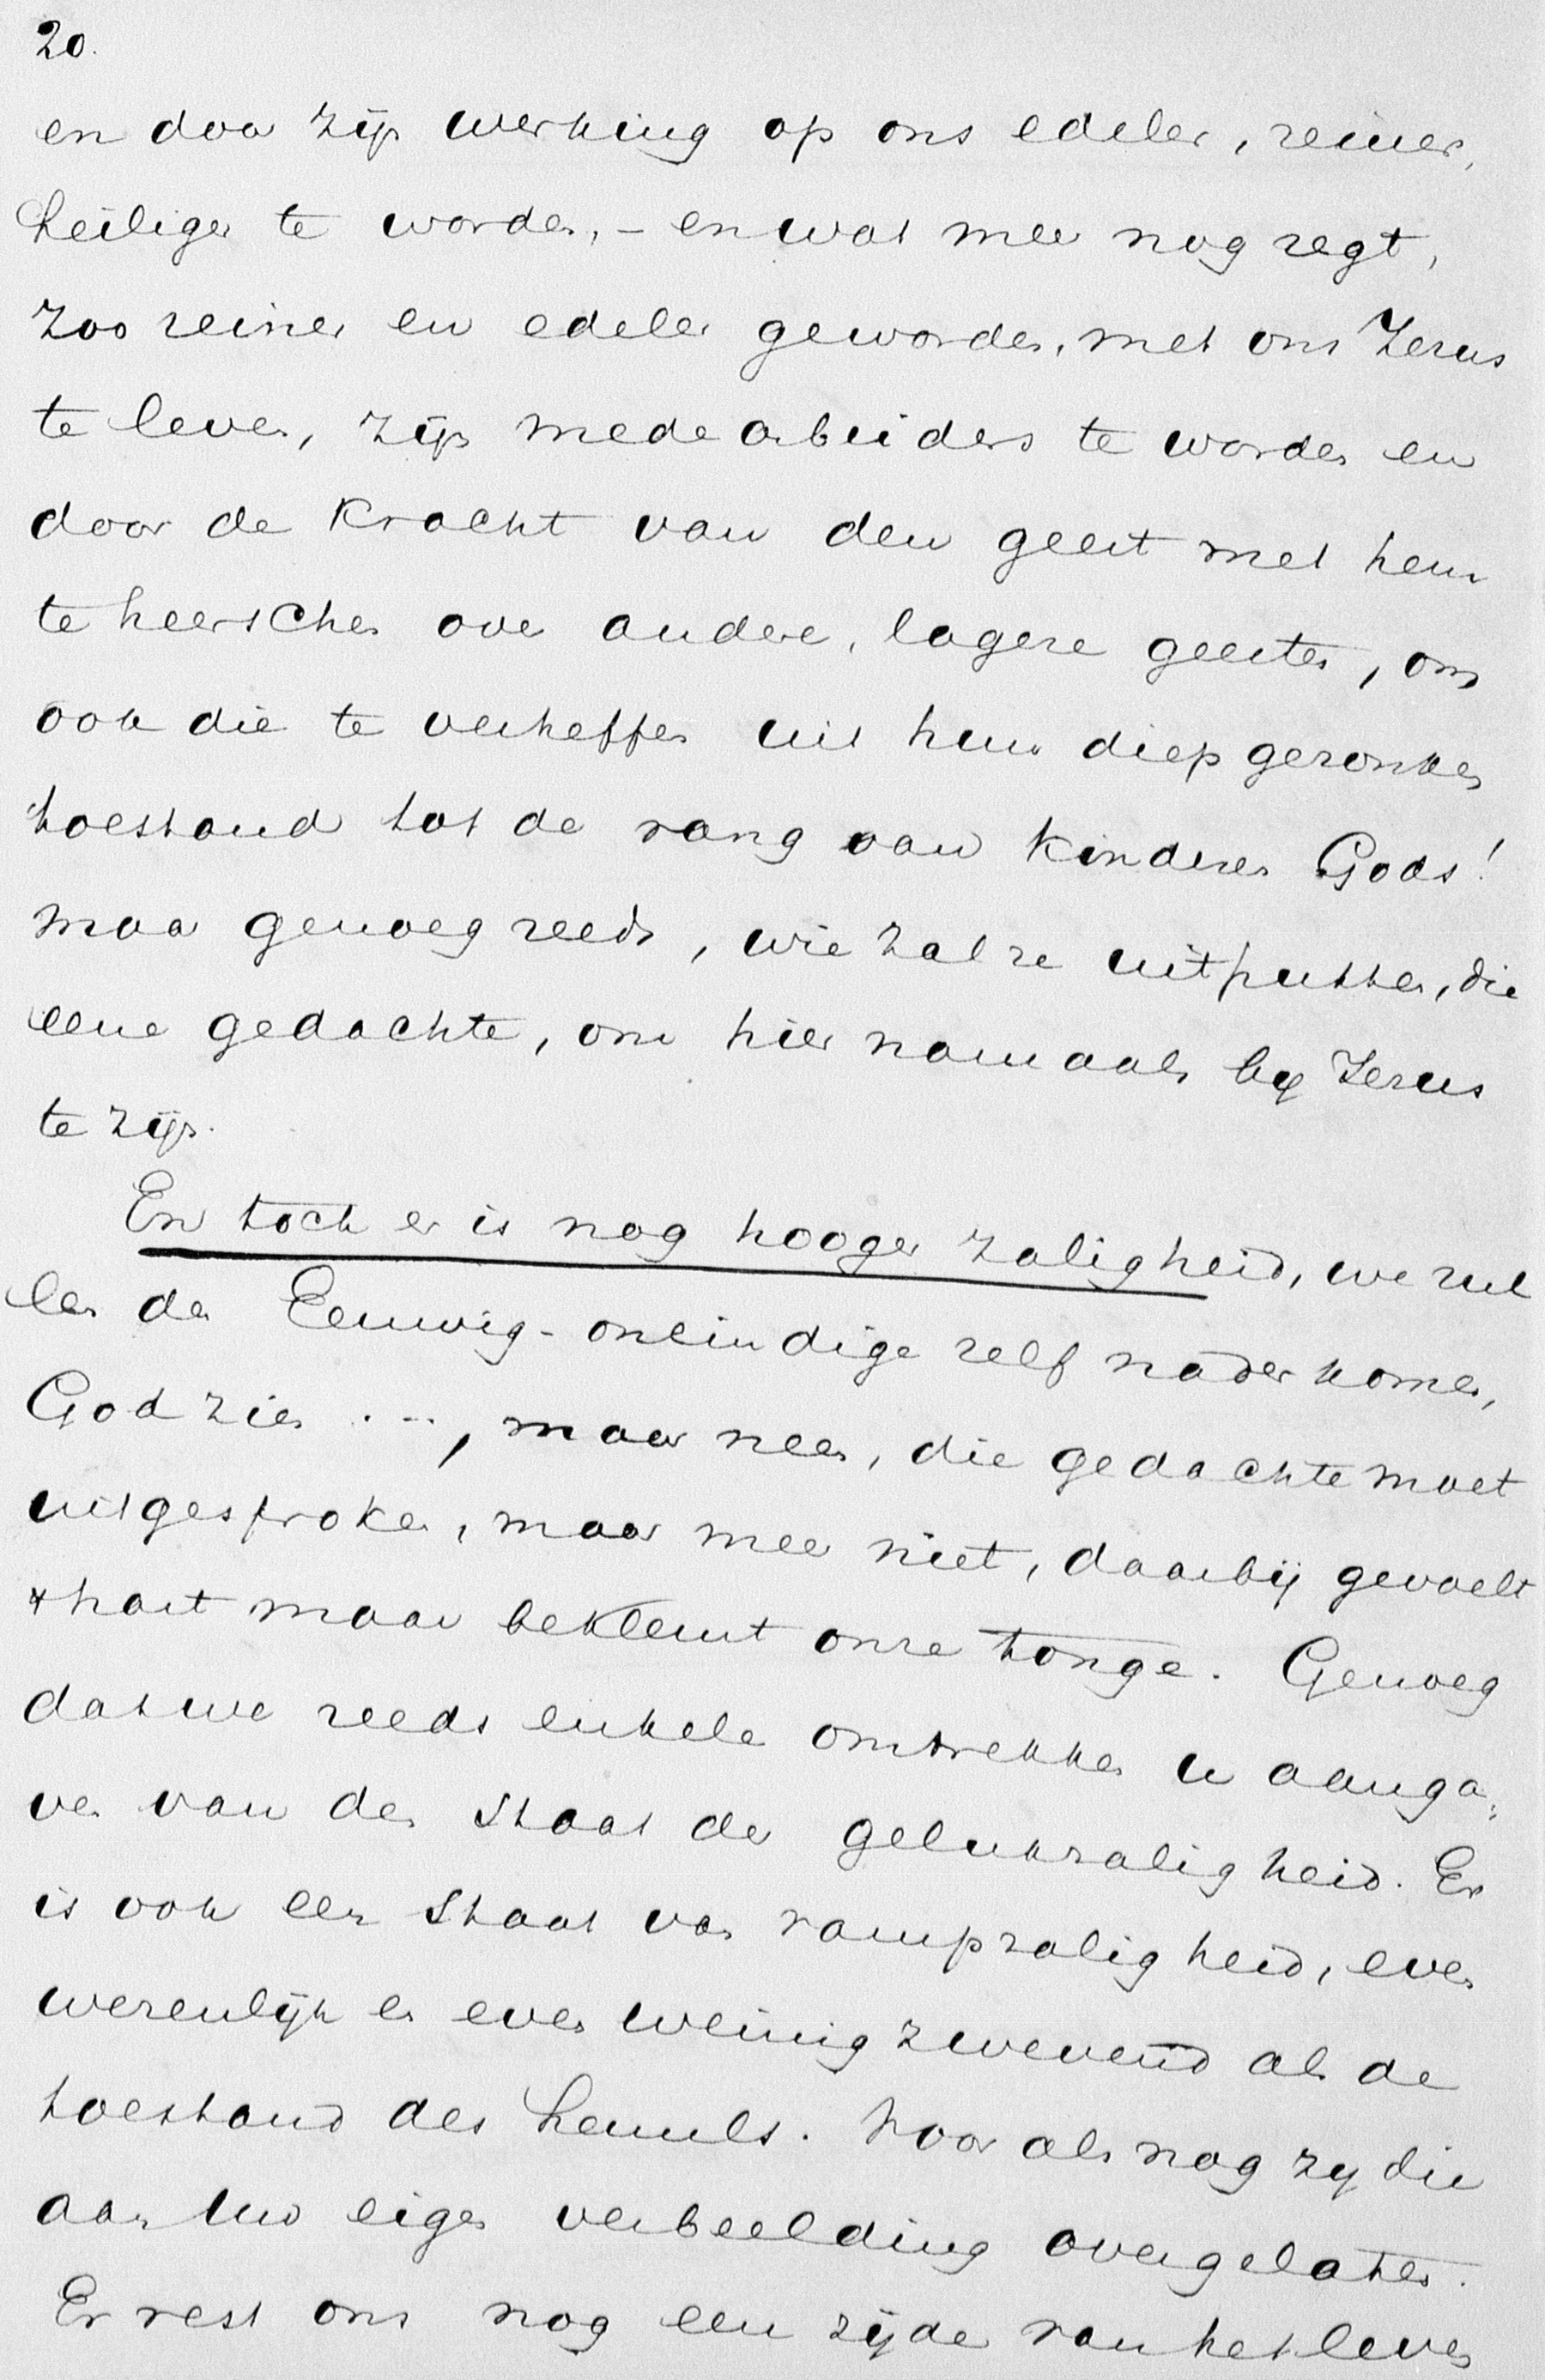 20.
en door zijn werking op ons edeler, reiner,
heiliger te worden, - en wat meer nog zegt,
zoo reiner en edeler geworden, met ons Jezus
te leven, zijn medearbeiders te worden en
door de kracht van den geest met hem
te heerschen over andere, lagere geesten, om
ook die te verheffen uit hun diep gezonken
toestand tot de rang van kinderen Gods!
maar genoeg reeds, wie zal ze uitputten, die
eene gedachte, om hier namaals by Jezus
te zijn.
En toch er is nog hooger zaligheid, we zul
len den Eeuwig-oneindige zelf nader komen,
God zien ..., maar neen, die gedachte moet
uitgesproken, maar meer niet, daarbij gevoelt
't hart maar beklemt onze tonge. Genoeg
dat we reeds enkele omtrekken u aanga=
ven van den staat der gelukzaligheid. Er
is ook een staat van rampzaligheid, even
wezenlijk en even weinig zwevend als de
toestand des hemels. Voor als nog zy die
aan uw eigen verbeelding overgelaten.
Er rest ons nog een zijde van het leven